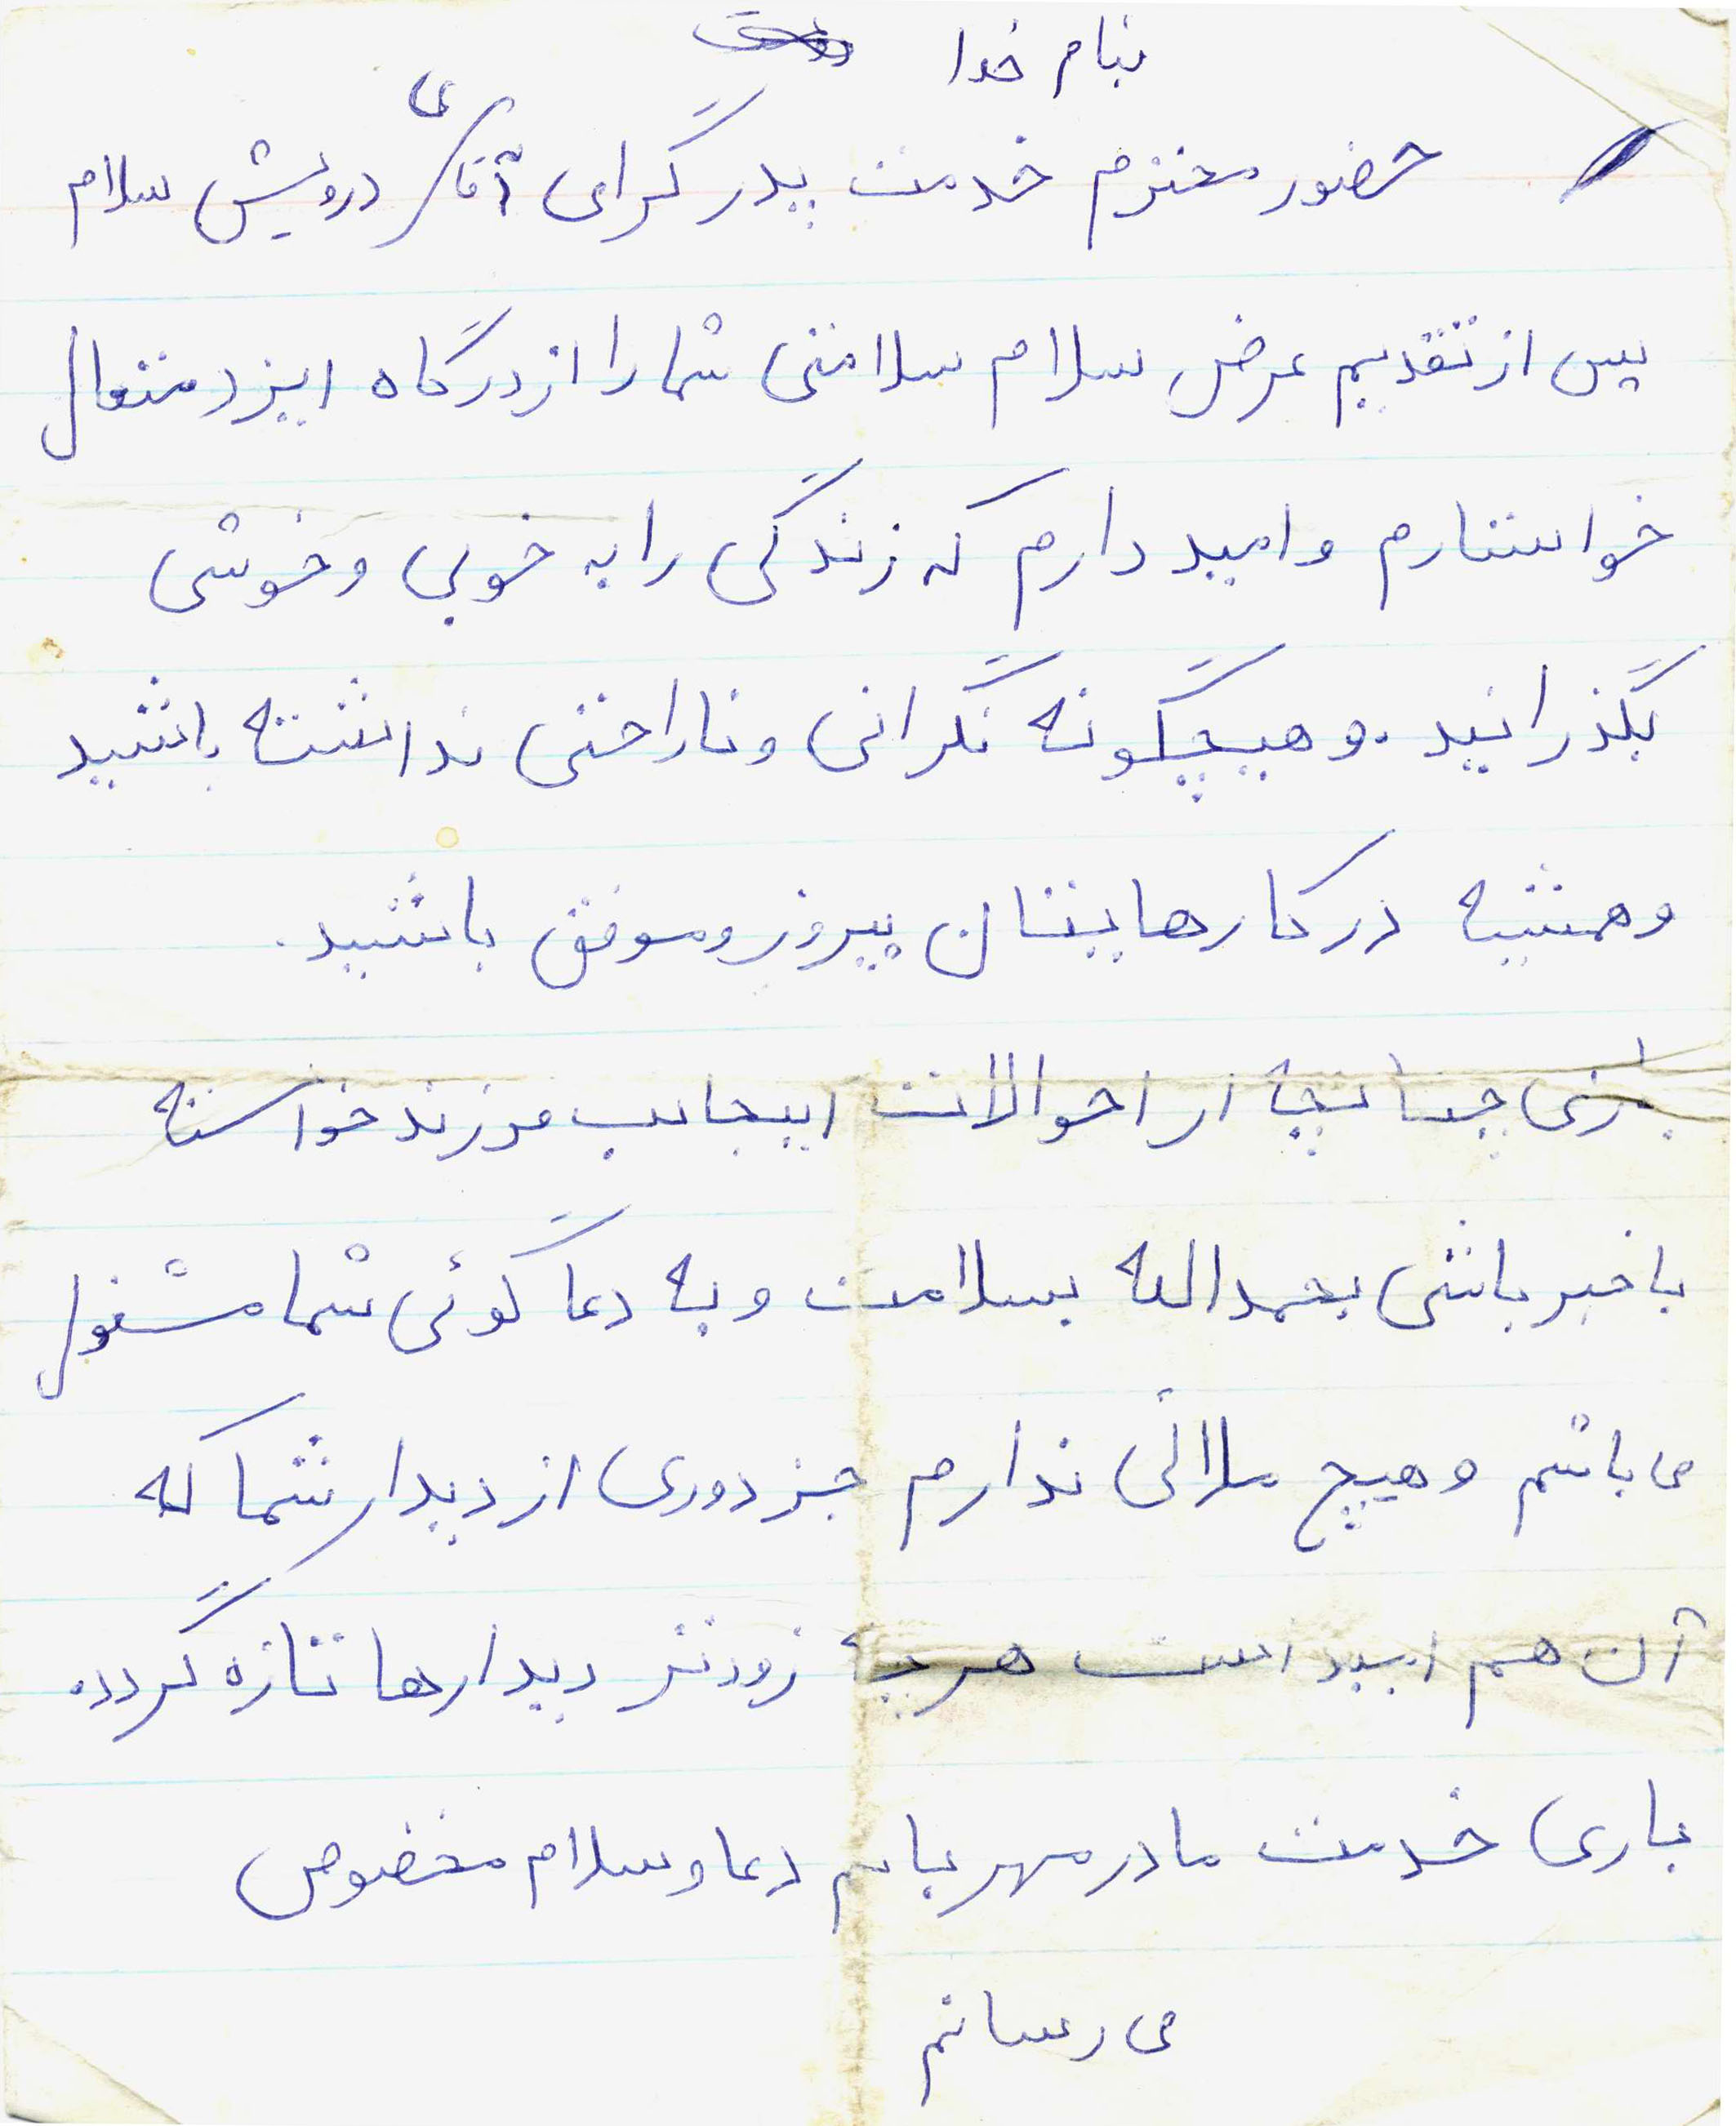 بنام خدا
حضور محترم خدمت پدر گرامی آقای درویش سلام
پس از تقدیم عرض سلام سلامتی شما را از درگاه ایزد متعال
خواستارم و امید دارم که زندگی را به خوبی و خوشی
بگذرانید. و هیچگونه نگرانی و ناراحتی نداشته باشید
و همشیه در کارهایتان پیروز و موفق باشید.
باری چنانچه از احوالات اینجانب فرزند خواسته
باخبر باشی بحمدالله بسلامت و به دعا گوئی شما مشغول
می باشم و هیچ ملالی ندارم جز دوری از دیدار شما که
آن هم امید است هرچه زودتر دیدارها تازه گردد.
باری خدمت مادر مهربانم دعا و سلام مخصوص
می رسانم